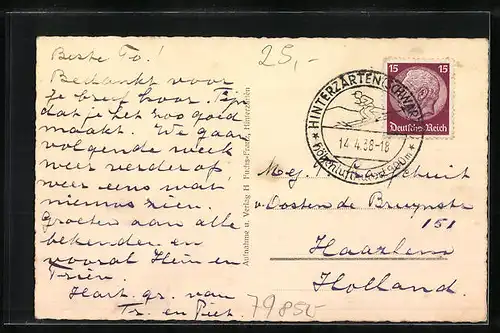 Beste To!
Bedankt voor
je brief hoor. Fijn
dat je het zoo goed
maakt. We gaan
volgende week
weer verder op,
weer eens wat
nieuws zien.
Groeten aan alle
bekenden en
vooral Hein en
Trien.
Hart. gr. van
Tr. en Piet.
25,-
Aufnahme u. Verlag H Fuchs-Frank, Hinterzarten
79850
HINTERZARTEN (SCHWARZW
14.4.38-18
Höhenluftkurort 900m
15 15
Deutsches Reich
Mej.
v. Oosten de Bruynstr
151
Haarlem
Holland.